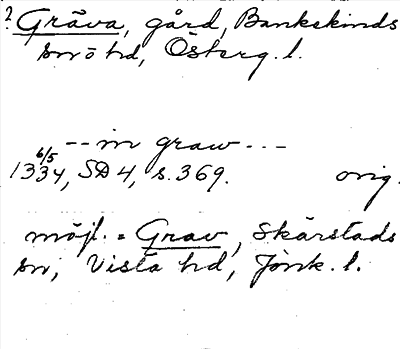 ? Gråva, gård, Bankekinds
sn o hd, Österg. l.
-- in graw ---
6/5
1334, SD 4, s. 369. orig.
möjl. = Grav, Skärstads
sn, Vista hd, Jönk. l.